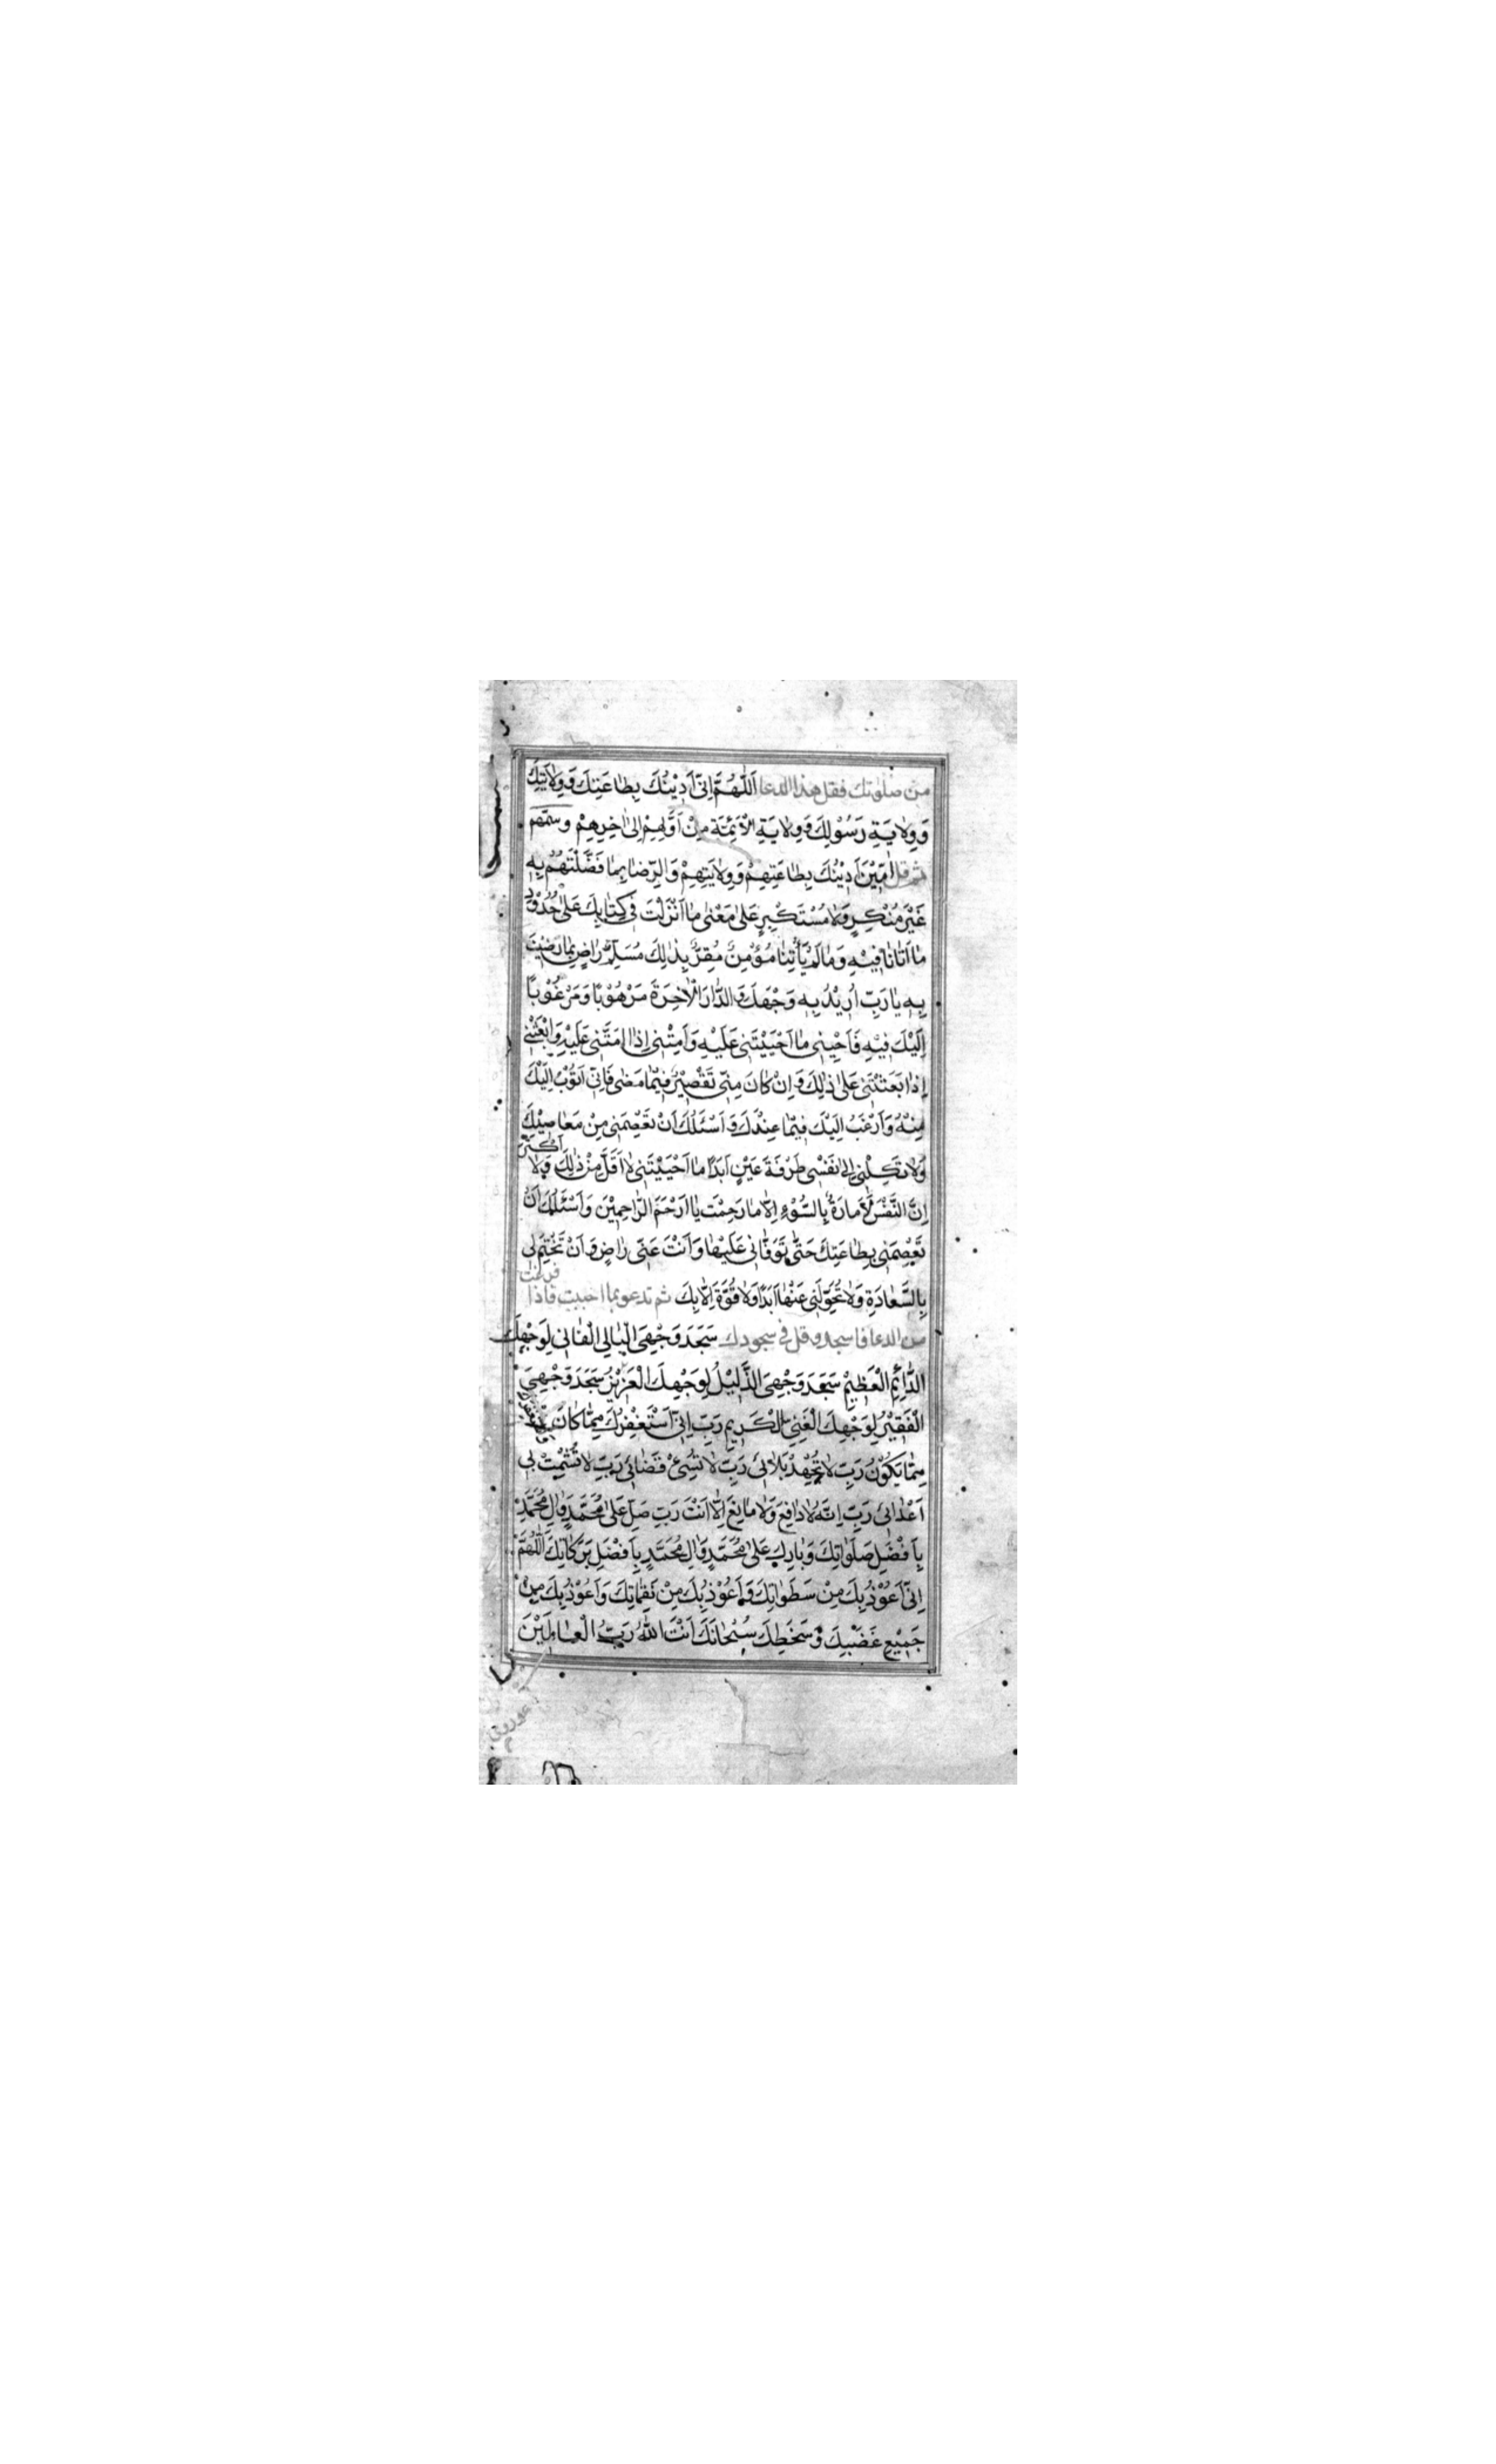 من صلوتك فقل هذا الدعا اَللّٰهُمَّ اِنّي اَدِيْنُكَ بِطاعَتِكَ وَوِلايَتِكَ
وَوِلايَةِ رَسُوْلِكَ وَوِلايَةِ الْاَئِمَّةِ مِنْ اَوَّلِهِمْ اِلىٰ اٰخِرِهِمْ وسمّهم
ثم قل اٰمِيْنَ اَدِيْنُكَ بِطاعَتِهِمْ وَوِلايَتِهِمْ وَالرِّضا بِما فَضَّلْتَهُمْ بِهِ
غَيْرَ مُنْكِرٍ وَلا مُسْتَكْبِرٍ عَلىٰ مَعْنىٰ ما اَنْزَلْتَ فى كِتابِكَ عَلىٰ حُدُوْدِ
ما اَتانا فِيْهِ وَما لَمْ يَأْتِنا مُؤْمِنٌ مُقِرٌّ بِذٰلِكَ مُسَلِّمٌ راضٍ بِما رَضِيْتَ
بِهِ يا رَبِّ اُرِيْدُ بِهِ وَجْهَكَ وَالدّارَ الْاٰخِرَةَ مَرْهُوْبًا وَمَرْغُوْبًا
اِلَيْكَ فِيْهِ فَاَحْيِنى ما اَحْيَيْتَنى عَلَيْهِ وَاَمِتْنى اِذا اَمَتَّنى عَلَيْهِ وَابْعَثْنى
اِذا بَعَثْتَنى عَلىٰ ذٰلِكَ وَاِنْ كانَ مِنّى تَقْصِيْرٌ فِيْما مَضىٰ فَاِنّى اَتُوْبُ اِلَيْكَ
مِنْهُ وَاَرْغَبُ اِلَيْكَ فِيْما عِنْدَكَ وَاَسْئَلُكَ اَنْ تَعْصِمَنى مِنْ مَعاصِيْكَ
وَلا تَكِلْنى اِلىٰ نَفْسى طَرْفَةَ عَيْنٍ اَبَدًا ما اَحْيَيْتَنى لا اَقَلَّ مِنْ ذٰلِكَ وَلا اَكْثَرَ
اِنَّ النَّفْسَ لَاَمّارَةٌ بِالسُّوْءِ اِلّا ما رَحِمْتَ يا اَرْحَمَ الرّاحِمِيْنَ وَاَسْئَلُكَ اَنْ
تَعْصِمَنى بِطاعَتِكَ حَتّىٰ تَوَفّانى عَلَيْها وَاَنْتَ عَنّى راضٍ وَاَنْ تَخْتِمَ لى
بِالسَّعادَةِ وَلا تُحَوِّلَنى عَنْها اَبَدًا وَلا قُوَّةَ اِلّا بِكَ ثم تدعو بما احببت فاذا فرغت
من الدعا فاسجد وقل فى سجودك سَجَدَ وَجْهِىَ الْبالِى الْفانى لِوَجْهِكَ
الدّائِمِ الْعَظِيْمِ سَجَدَ وَجْهِىَ الذَّلِيْلُ لِوَجْهِكَ الْعَزِيْزِ سَجَدَ وَجْهِىَ
الْفَقِيْرُ لِوَجْهِكَ الْغَنِىِّ الْكَرِيمِ رَبِّ اِنّى اَسْتَغْفِرُكَ مِمّا كانَ
مِمّا يَكُوْنُ رَبِّ لا تُجْهِدْ بَلائى رَبِّ لا تُسِئْ قَضائى رَبِّ لا تُشْمِتْ بى
اَعْدائى رَبِّ اِنَّهُ لا دافِعَ وَلا مانِعَ اِلّا اَنْتَ رَبِّ صَلِّ عَلىٰ مُحَمَّدٍ وَاٰلِ مُحَمَّدٍ
بِاَفْضَلِ صَلَواتِكَ وَبارِكْ عَلىٰ مُحَمَّدٍ وَاٰلِ مُحَمَّدٍ بِاَفْضَلِ بَرَكاتِكَ اَللّٰهُمَّ
اِنّى اَعُوْذُ بِكَ مِنْ سَطَواتِكَ وَاَعُوْذُ بِكَ مِنْ نَقِماتِكَ وَاَعُوْذُ بِكَ مِنْ
جَمِيْعِ غَضَبِكَ وَسَخَطِكَ سُبْحانَكَ اَنْتَ اللّٰهُ رَبُّ الْعالَمِيْنَ